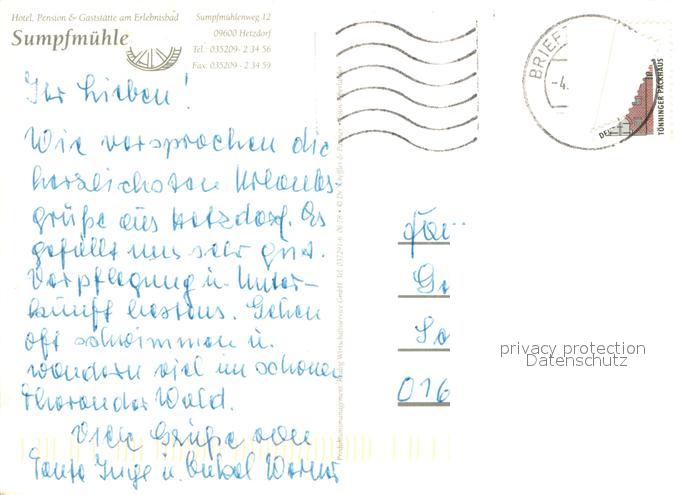 Hotel, Pension & Gaststätte am Erlebnisbad
Sumpfmühle
Sumpfmühlenweg 12
09600 Hetzdorf
Tel.: 035209 - 2 34 56
Fax: 035209 - 2 34 59
Ihr Lieben!
Wie versprochen die
herzlichsten Urlaubs-
grüße aus Hetzdorf. Es
gefällt uns sehr gut.
Verpflegung u. Unter-
kunft bestens. Gehen
oft schwimmen u.
wandern viel im schönen
Tharandter Wald.
Viele Grüße von
Tante Inge u. Onkel Werner
BRIEF
-4.
DEU
TÖNNINGER PACKHAUS
10
Fam
Ge
So
016
privacy protection
Datenschutz